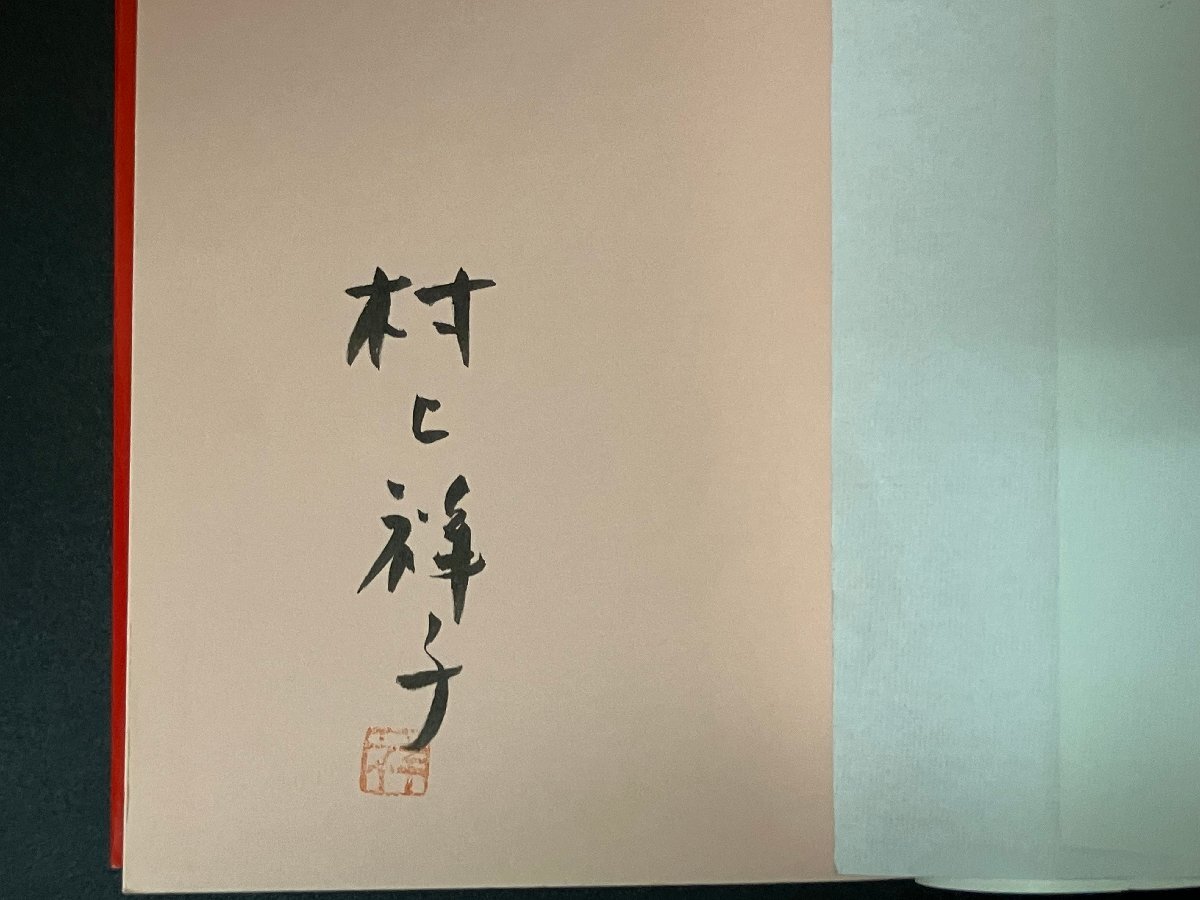 村上祥子